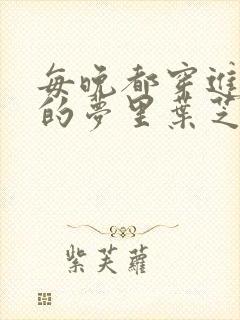 每晚都穿進
的夢里葉芝
紫芙蘿